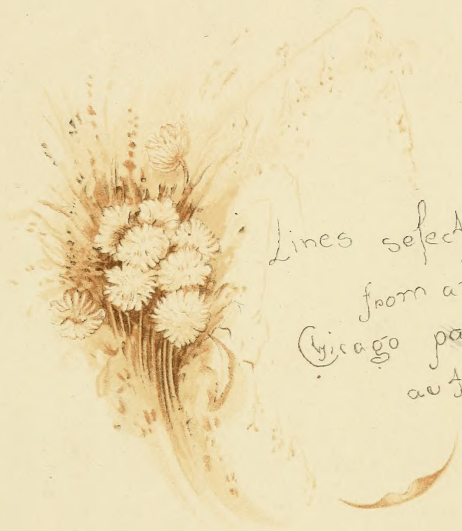 Lines select
from a
Chicago pa
aut